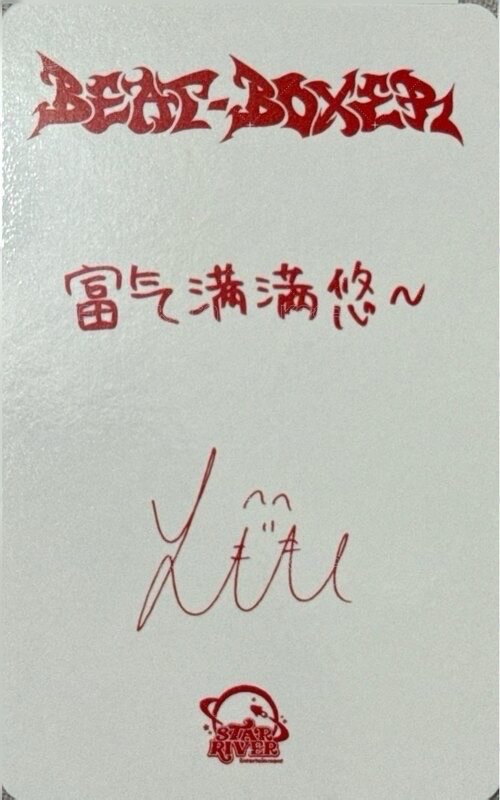 BEAT-BOXER
富气满满悠~
STAR
RIVER
Entertainment